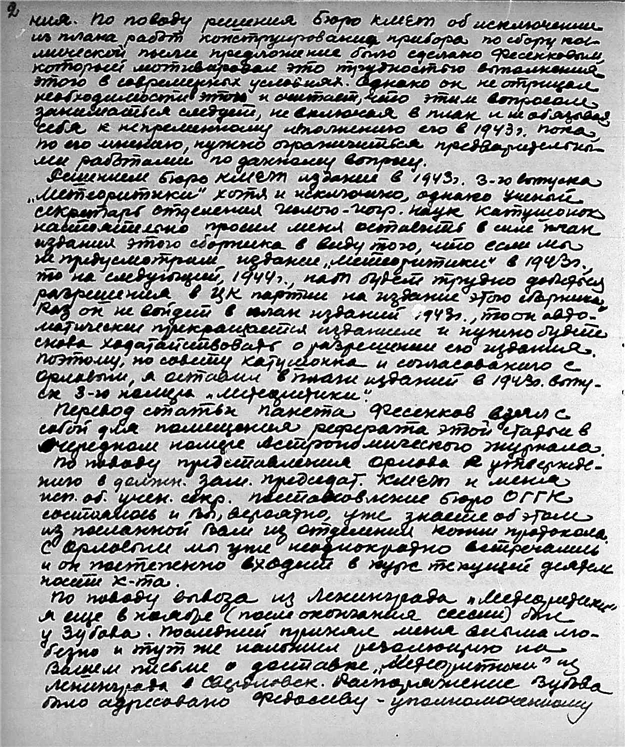 2
ния. По поводу решения Бюро КМЕТ об исключении
из плана работ конструирования прибора по сбору кос-
мической пыли предложение было сделано Фесенковым,
который мотивировал это трудностью выполнения
этого в современных условиях. Однако он не отрицал
необходимости этого и считает, что этим вопросом
заниматься следует, не включая в план и не обязывая
себя к непременному исполнению его в 1943 г. Пока,
по его мнению, нужно ограничиться предварительны-
ми работами по данному вопросу.
Решением Бюро КМЕТ издание в 1943 г. 3-го выпуска
„Метеоритики" хотя и исключено, однако ученый
секретарь отделения геолого-геогр. наук Катушонок
настоятельно просил меня оставить в силе план
издания этого сборника в виду того, что если мы
не предусмотрим издание „Метеоритики" в 1943 г.,
то на следующий, 1944 г., нам будет трудно добиться
разрешения в ЦК партии на издание этого сборника.
Раз он не войдет в план изданий 1943 г., то он авто-
матически прекращается изданием и нужно будет
снова ходатайствовать о разрешении его издания.
Поэтому, по совету Катушонка и согласованию с
Орловым, я оставил в плане изданий в 1943 г. выпу-
ск 3-го номера „Метеоритики".
Перевод статьи Панета Фесенков взял с
собой для помещения реферата этой статьи в
очередном номере Астрономического журнала.
По поводу представления Орлова к утвержде-
нию в должн. зам. председат. КМЕТ и меня
исп. об. учен. секр. постановление Бюро ОГГН
состоялось и Вы, вероятно, уже знаете об этом
из посланной Вам из отделения копии протокола.
С Орловым мы уже неоднократно встречались
и он постепенно входит в курс текущей деятель
ности К-та.
По поводу вывоза из Ленинграда „Метеоритики"
я еще в ноябре (после окончания сессии) был
у Зубова. Последний принял меня весьма лю-
безно и тут же наложил резолюцию на
Вашем письме о доставке „Метеоритики" из
Ленинграда в Свердловск. Распоряжение Зубова
было адресовано Федосееву - уполномоченному